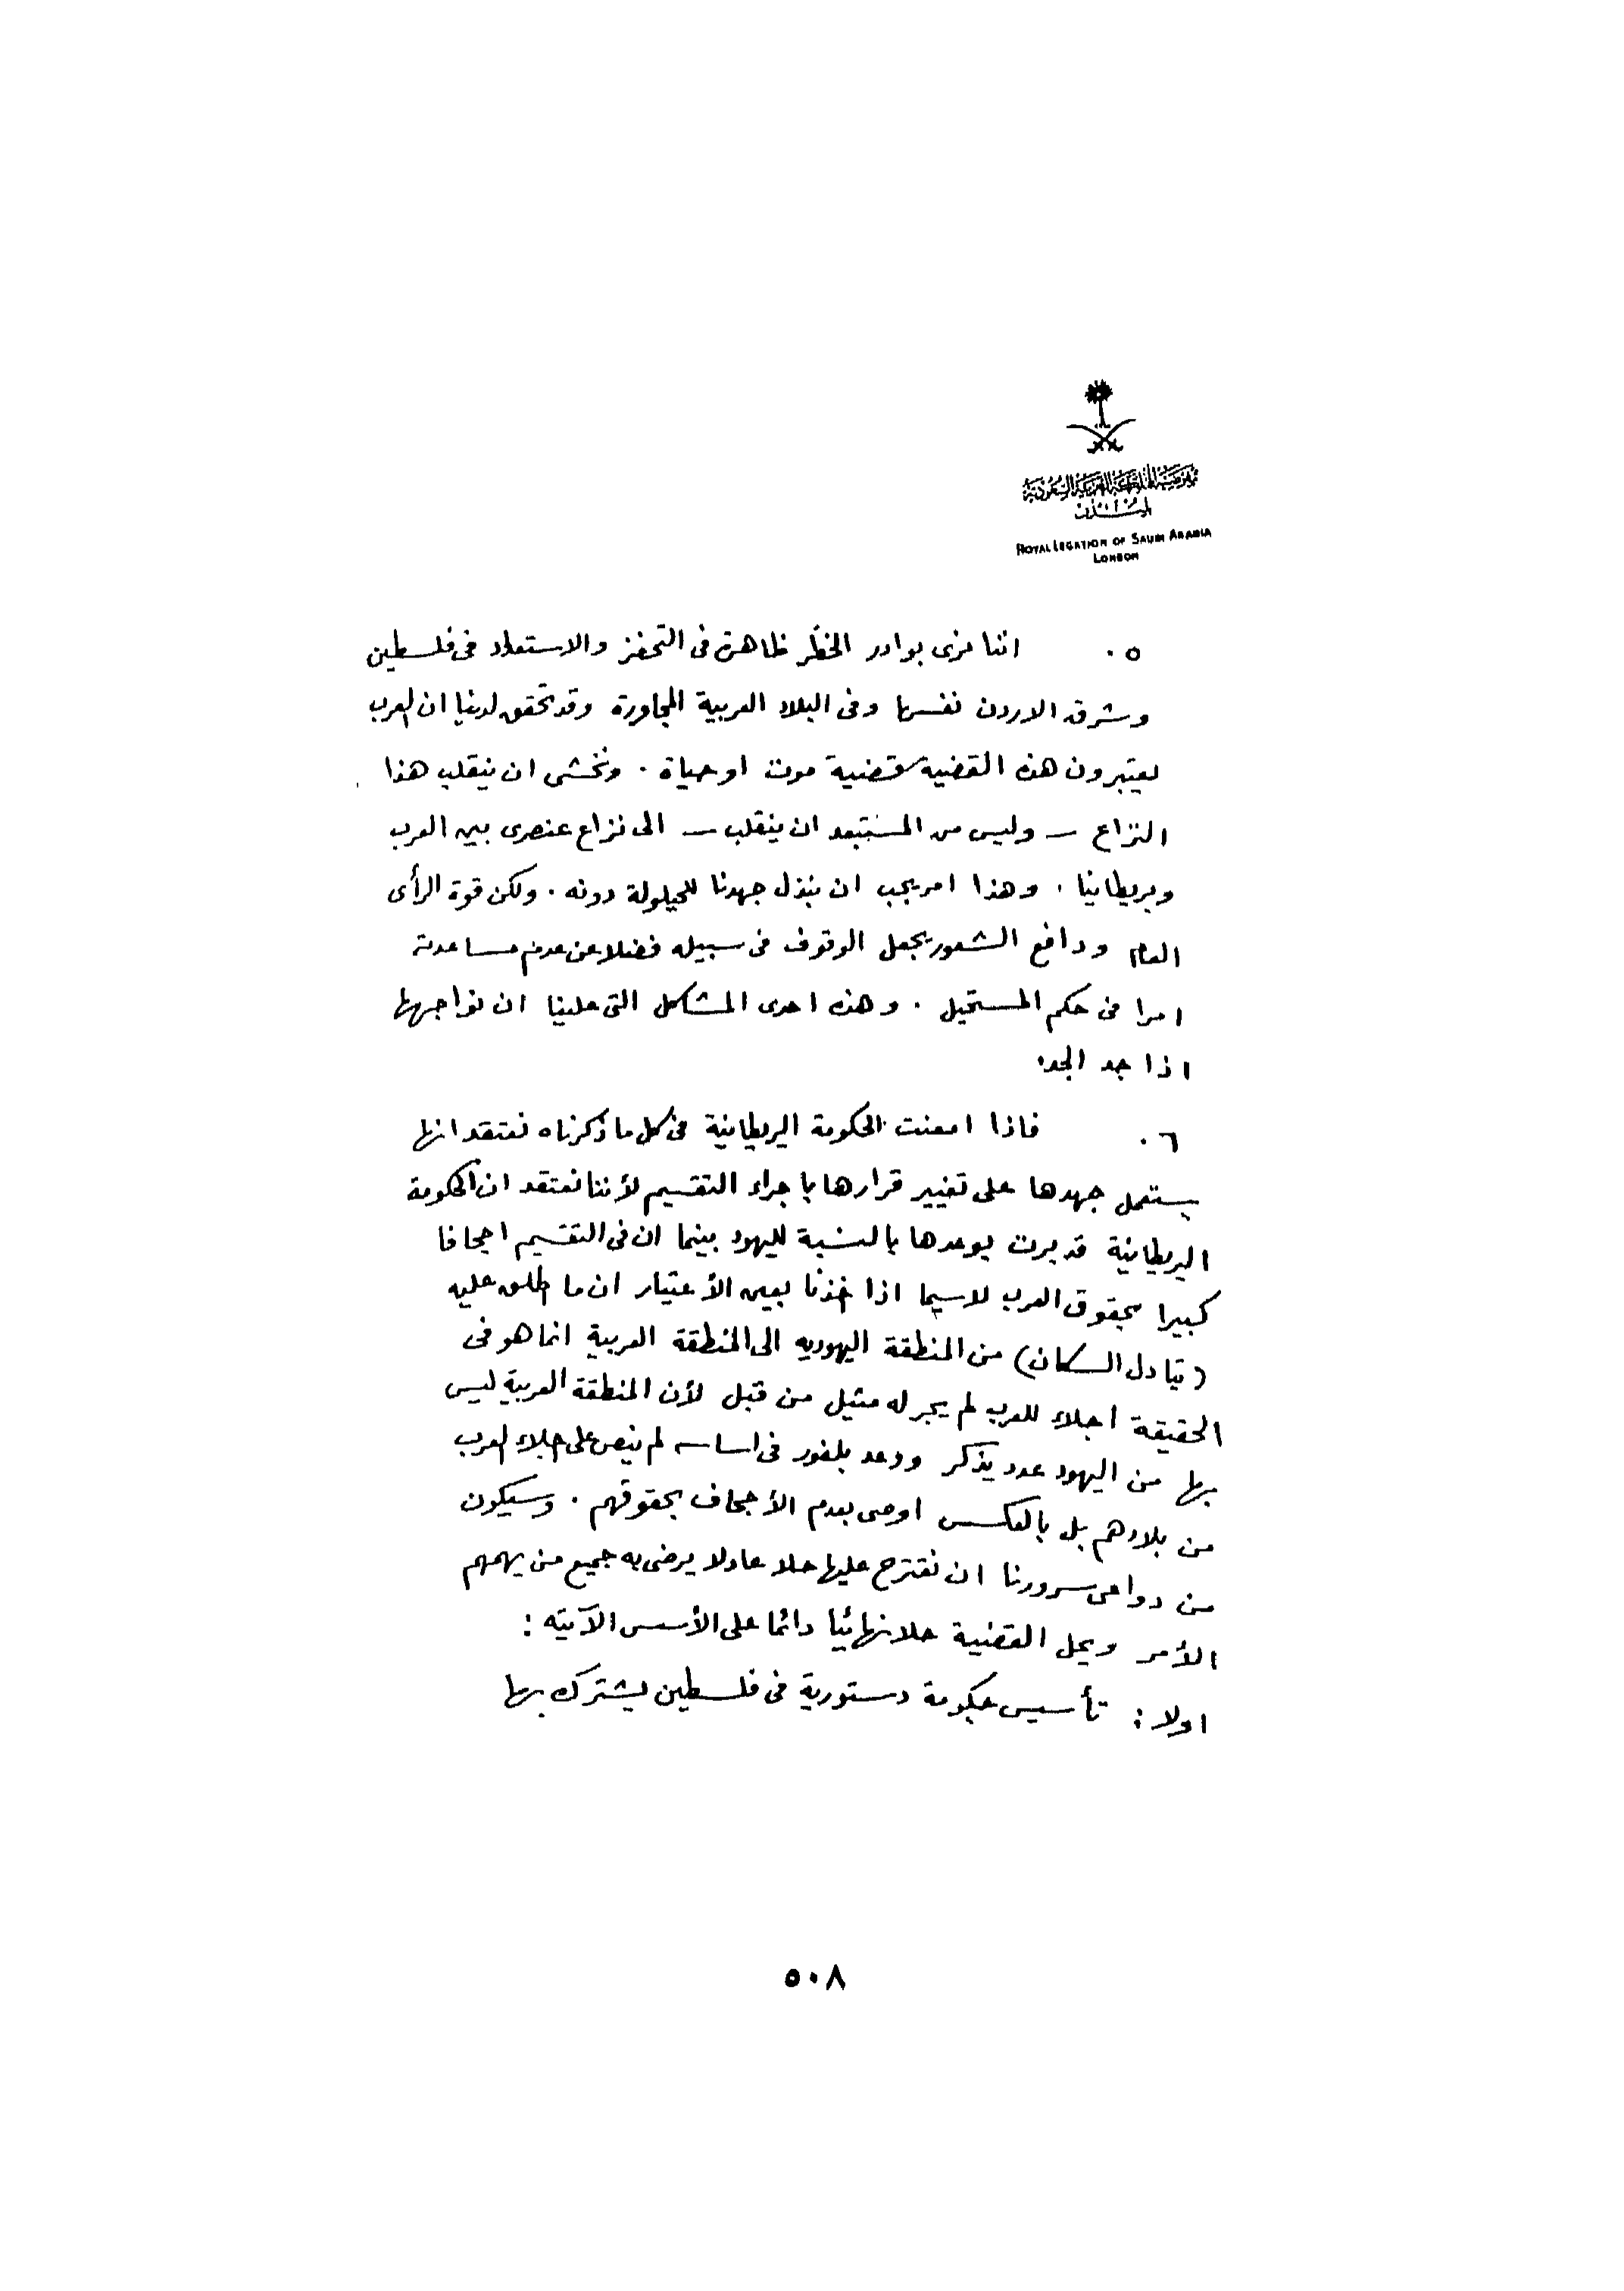 مفوضية المملكة العربية السعودية
بلندن
ROYAL LEGATION OF SAUDI ARABIA
LONDON
٥. اننا نرى بوادر الخطر ظاهرة فى التحفز والاستعداد فى فلسطين
وشرق الاردن نفسها وفى البلاد العربية المجاورة وقد تحقق لدينا ان العرب
يعتبرون هذه القضية قضية موت او حياة . ونخشى ان ينقلب هذا
النزاع — وليس من المستبعد ان ينقلب — الى نزاع عنصرى بين العرب
وبريطانيا . وهذا امر يجب ان نبذل جهدنا للحيلولة دونه . ولكن قوة الرأى
العام ودافع الشعور يجعل الوقوف فى سبيله فضلا عن عدم مساعدته
امرا فى حكم المستحيل . وهذه احدى المشاكل التى علينا ان نواجهها
اذا جد الجد.
٦. فاذا امعنت الحكومة البريطانية فى كل ما ذكرناه نعتقد انها
ستعمل جهدها على تغيير قرارها باجراء التقسيم لأننا نعتقد ان الحكومة
البريطانية قد برت بوعدها بالنسبة لليهود بينما ان فى التقسيم اجحافا
كبيرا بحقوق العرب لاسيما اذا اخذنا بعين الأعتبار ان ما اطلق عليه
(تبادل السكان) من المنطقة اليهودية الى المنطقة العربية انما هو فى
الحقيقة اجلاء للعرب لم يجر له مثيل من قبل لأن المنطقة العربية ليس
بها من اليهود عدد يذكر ووعد بلفور فى اساسه لم ينص على اجلاء العرب
من بلادهم بل بالعكس اوصى بعدم الأجحاف بحقوقهم . وسيكون
من دواعى سرورنا ان نقترح عليها حلا عادلا يرضى به جميع من يهمهم
الأمر ويحل القضية حلا نهائيا دائما على الأسس الآتيه :
اولا : تأسيس حكومة دستورية فى فلسطين يشترك بها
٥٠٨